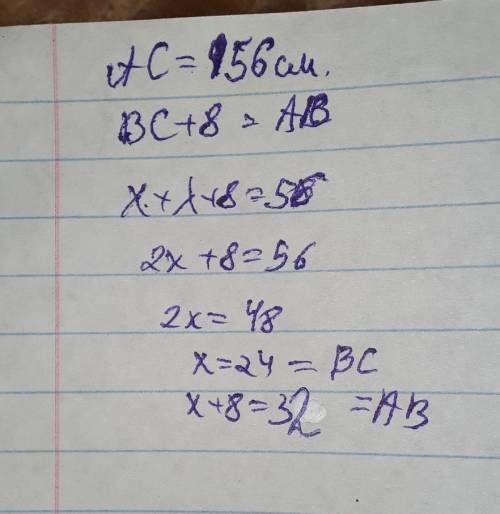 AC = 56 см.
BC + 8 = AB
x + x + 8 = 56
2x + 8 = 56
2x = 48
x = 24 = BC
x + 8 = 32 = AB